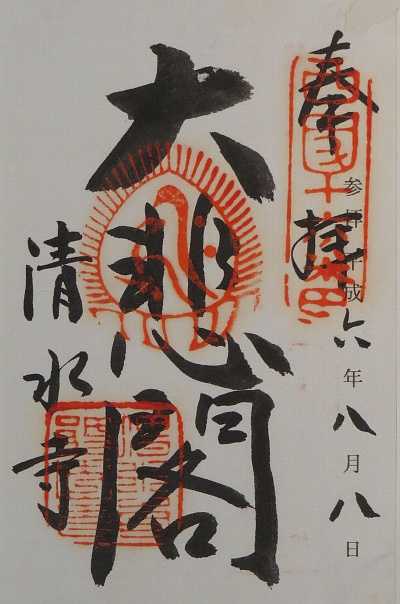 奉拝
参拝平成六年八月八日
大悲閣
清水寺